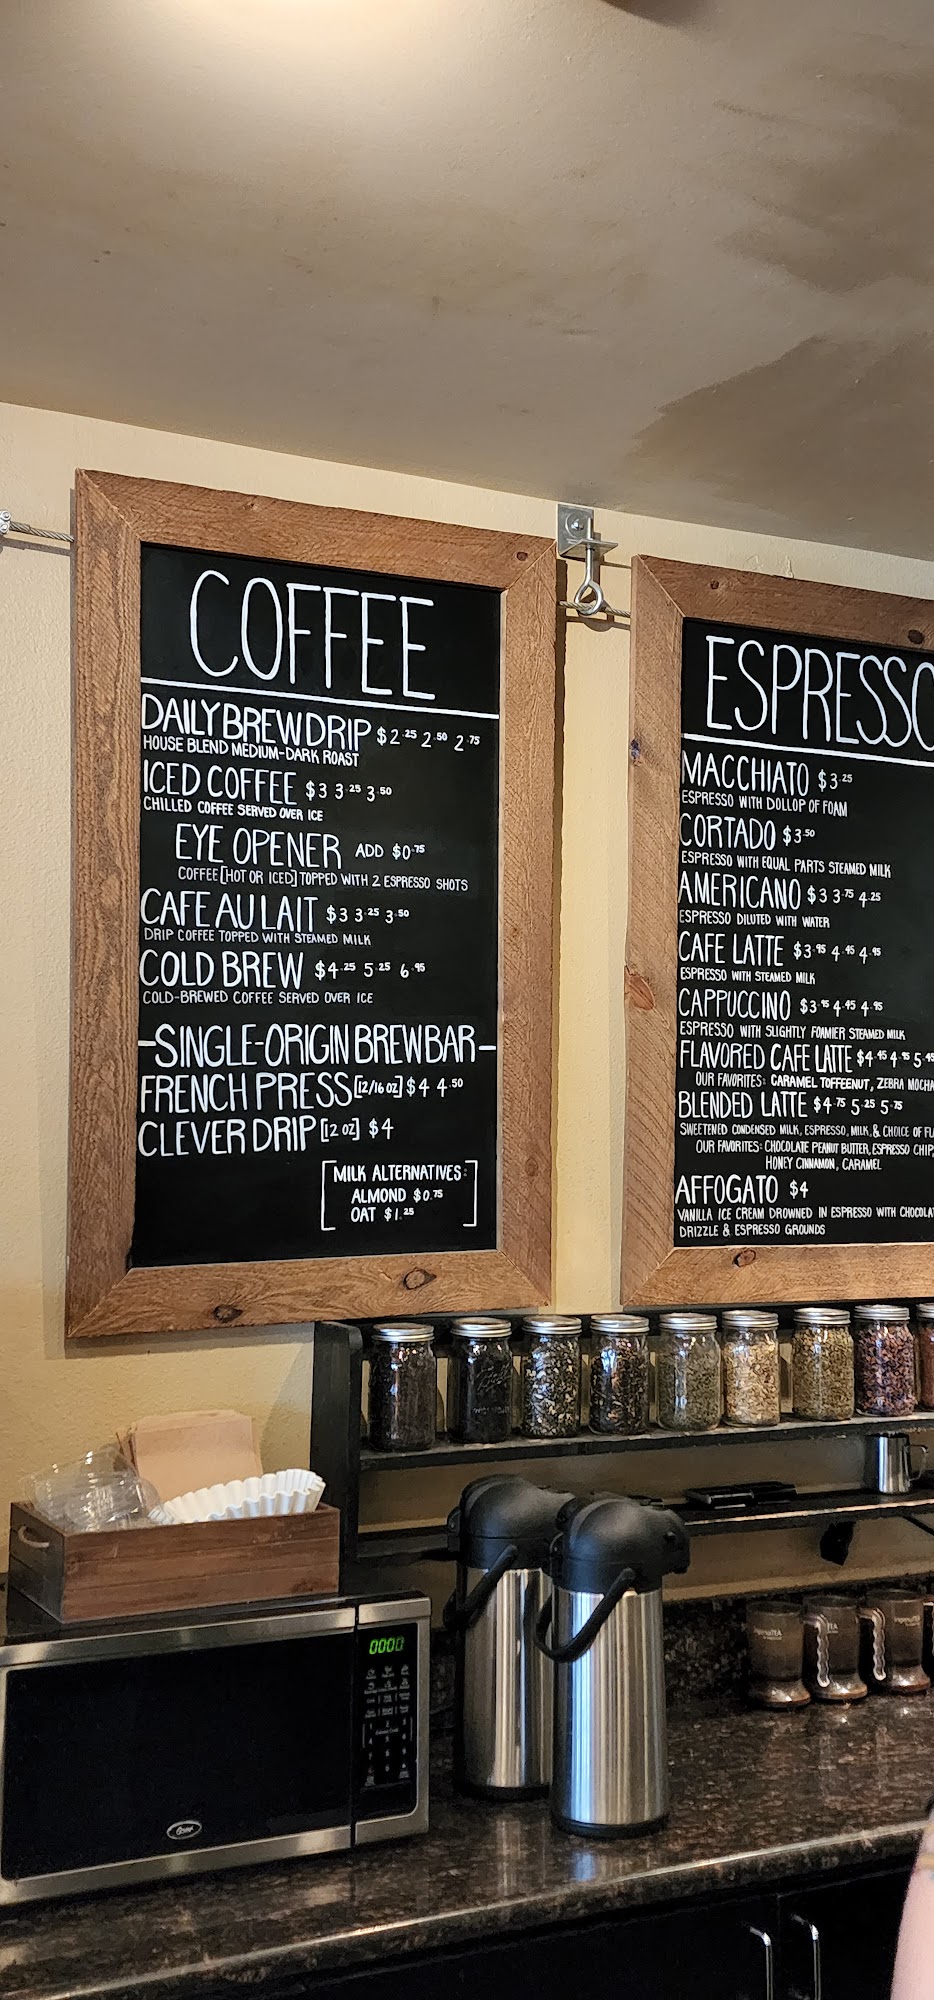 COFFEE
DAILY BREW DRIP $2.25 2.50 2.75
HOUSE BLEND MEDIUM-DARK ROAST
ICED COFFEE $3 3.25 3.50
CHILLED COFFEE SERVED OVER ICE
EYE OPENER ADD $0.75
COFFEE [HOT OR ICED] TOPPED WITH 2 ESPRESSO SHOTS
CAFE AU LAIT $3 3.25 3.50
DRIP COFFEE TOPPED WITH STEAMED MILK
COLD BREW $4.25 5.25 6.95
COLD-BREWED COFFEE SERVED OVER ICE
-SINGLE-ORIGIN BREW BAR-
FRENCH PRESS [12/16 OZ] $4 4.50
CLEVER DRIP [12 OZ] $4
MILK ALTERNATIVES:
ALMOND $0.75
OAT $1.25
ESPRESSO
MACCHIATO $3.25
ESPRESSO WITH DOLLOP OF FOAM
CORTADO $3.50
ESPRESSO WITH EQUAL PARTS STEAMED MILK
AMERICANO $3 3.75 4.25
ESPRESSO DILUTED WITH WATER
CAFE LATTE $3.95 4.45 4.95
ESPRESSO WITH STEAMED MILK
CAPPUCCINO $3.95 4.45 4.95
ESPRESSO WITH SLIGHTLY FOAMIER STEAMED MILK
FLAVORED CAFE LATTE $4.45 4.95 5.45
OUR FAVORITES: CARAMEL TOFFEENUT, ZEBRA MOCHA
BLENDED LATTE $4.75 5.25 5.75
SWEETENED CONDENSED MILK, ESPRESSO, MILK, & CHOICE OF
OUR FAVORITES: CHOCOLATE PEANUT BUTTER, ESPRESSO CHIP,
HONEY CINNAMON, CARAMEL
AFFOGATO $4
VANILLA ICE CREAM DROWNED IN ESPRESSO WITH CHOCOLAT
DRIZZLE & ESPRESSO GROUNDS
0000
Oster